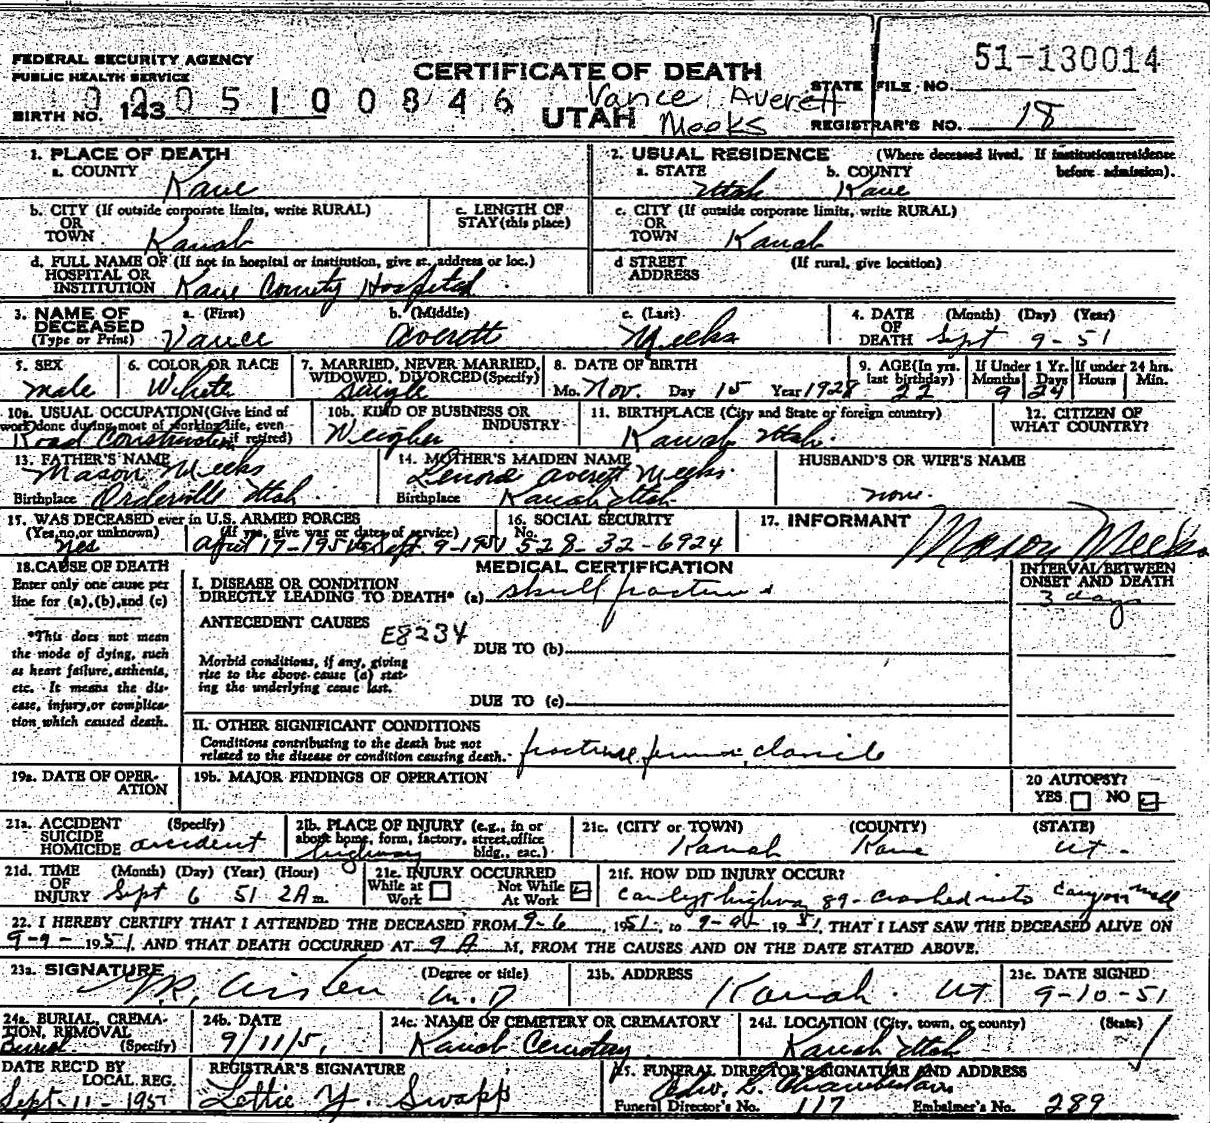 FEDERAL SECURITY AGENCY
PUBLIC HEALTH SERVICE
CERTIFICATE OF DEATH
51-130014
STATE FILE NO.
0005100846
BIRTH NO. 143
UTAH
Vance Averett
Meeks
REGISTRAR'S NO. 18
1. PLACE OF DEATH
a. COUNTY Kane
2. USUAL RESIDENCE (Where deceased lived. If institution: residence before admission).
a. STATE Utah b. COUNTY Kane
b. CITY (If outside corporate limits, write RURAL)
OR
TOWN Kanab
c. LENGTH OF
STAY (this place)
c. CITY (If outside corporate limits, write RURAL)
OR
TOWN Kanab
d. FULL NAME OF (If not in hospital or institution, give st., address or loc.)
HOSPITAL OR
INSTITUTION Kane County Hospital
d STREET (If rural, give location)
ADDRESS
3. NAME OF DECEASED
(Type or Print)
a. (First) Vance
b. (Middle) Averett
c. (Last) Meeks
4. DATE OF DEATH (Month) (Day) (Year)
Sept 9-51
5. SEX
male
6. COLOR OR RACE
White
7. MARRIED, NEVER MARRIED,
WIDOWED, DIVORCED (Specify)
Single
8. DATE OF BIRTH
Mo. Nov. Day 15 Year 1928
9. AGE (In yrs.
last birthday)
22
If Under 1 Yr.
Months Days
9 24
If under 24 hrs.
Hours Min.
10a. USUAL OCCUPATION (Give kind of
work done during most of working life, even
if retired)
Road Construction
10b. KIND OF BUSINESS OR
INDUSTRY
Weigher
11. BIRTHPLACE (City and State or foreign country)
Kanab Utah.
12. CITIZEN OF
WHAT COUNTRY?
13. FATHER'S NAME
Mason Meeks
Birthplace Orderville Utah.
14. MOTHER'S MAIDEN NAME
Lenora Averett Meeks.
Birthplace Kanab Utah
HUSBAND'S OR WIFE'S NAME
none.
15. WAS DECEASED ever in U.S. ARMED FORCES
(Yes, no, or unknown) (If yes, give war or dates of service)
yes April 17-1951 to Sept. 9-1951
16. SOCIAL SECURITY
No.
528-32-6924
17. INFORMANT Mason Meeks
18. CAUSE OF DEATH
Enter only one cause per
line for (a), (b), and (c)
*This does not mean
the mode of dying, such
as heart failure, asthenia,
etc. It means the dis-
ease, injury, or complica-
tion which caused death.
MEDICAL CERTIFICATION
I. DISEASE OR CONDITION
DIRECTLY LEADING TO DEATH* (a) skull fracture
INTERVAL BETWEEN
ONSET AND DEATH
3 days
ANTECEDENT CAUSES
E8234
DUE TO (b)
Morbid conditions, if any, giving
rise to the above cause (a) stat-
ing the underlying cause last.
DUE TO (c)
II. OTHER SIGNIFICANT CONDITIONS
Conditions contributing to the death but not
related to the disease or condition causing death.
fracture femur, clavicle
19a. DATE OF OPER-
ATION
19b. MAJOR FINDINGS OF OPERATION
20 AUTOPSY?
YES NO
21a. ACCIDENT (Specify)
SUICIDE
HOMICIDE accident
21b. PLACE OF INJURY (e.g., in or
about home, farm, factory, street, office
bldg., etc.)
highway
21c. (CITY or TOWN) (COUNTY) (STATE)
Kanab Kane Ut.
21d. TIME (Month) (Day) (Year) (Hour)
OF
INJURY Sept 6 51 2A m.
21e. INJURY OCCURRED
While at Work
Not While At Work
21f. HOW DID INJURY OCCUR?
car left highway 89- crashed into canyon wall
22. I HEREBY CERTIFY THAT I ATTENDED THE DECEASED FROM 9-6, 1951, to 9-9-1951, THAT I LAST SAW THE DECEASED ALIVE ON
9-9-1951, AND THAT DEATH OCCURRED AT 9 A M, FROM THE CAUSES AND ON THE DATE STATED ABOVE.
23a. SIGNATURE (Degree or title)
M.D
23b. ADDRESS
Kanab. Ut
23c. DATE SIGNED
9-10-51
24a. BURIAL, CREMA-
TION, REMOVAL
(Specify)
Burial
24b. DATE
9/11/51
24c. NAME OF CEMETERY OR CREMATORY
Kanab Cemetery
24d. LOCATION (City, town, or county) (State)
Kanab Utah
DATE REC'D BY
LOCAL REG.
Sept-11-1951
REGISTRAR'S SIGNATURE
Lottie Y. Swapp
25. FUNERAL DIRECTOR'S SIGNATURE AND ADDRESS
Edw. L. Chamberlain
Funeral Director's No. 117 Embalmer's No. 289